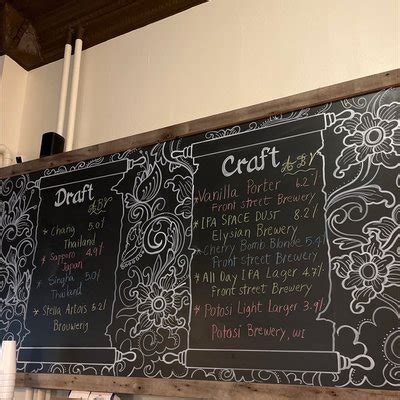 Draft
ABV
* Chang 5.0%
Thailand
* Sapporo 4.9%
Japan
* Singha 5.0%
Thailand
* Stella Artois 5.2%
Brouwery
Craft ABV
* Vanilla Porter 6.2%
Front street Brewery
* IPA SPACE DUST 8.2%
Elysian Brewery
* Cherry Bomb Blonde 5.4%
Front street Brewery
* All Day IPA Lager 4.7%
Front street Brewery
* Potosi Light Larger 3.9%
Potosi Brewery, WI